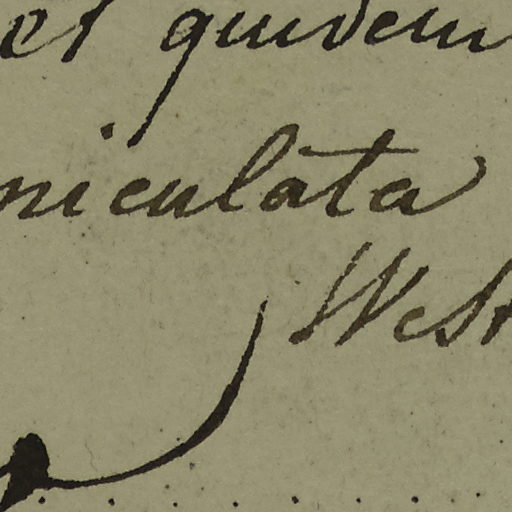 et quidem
niculata
West